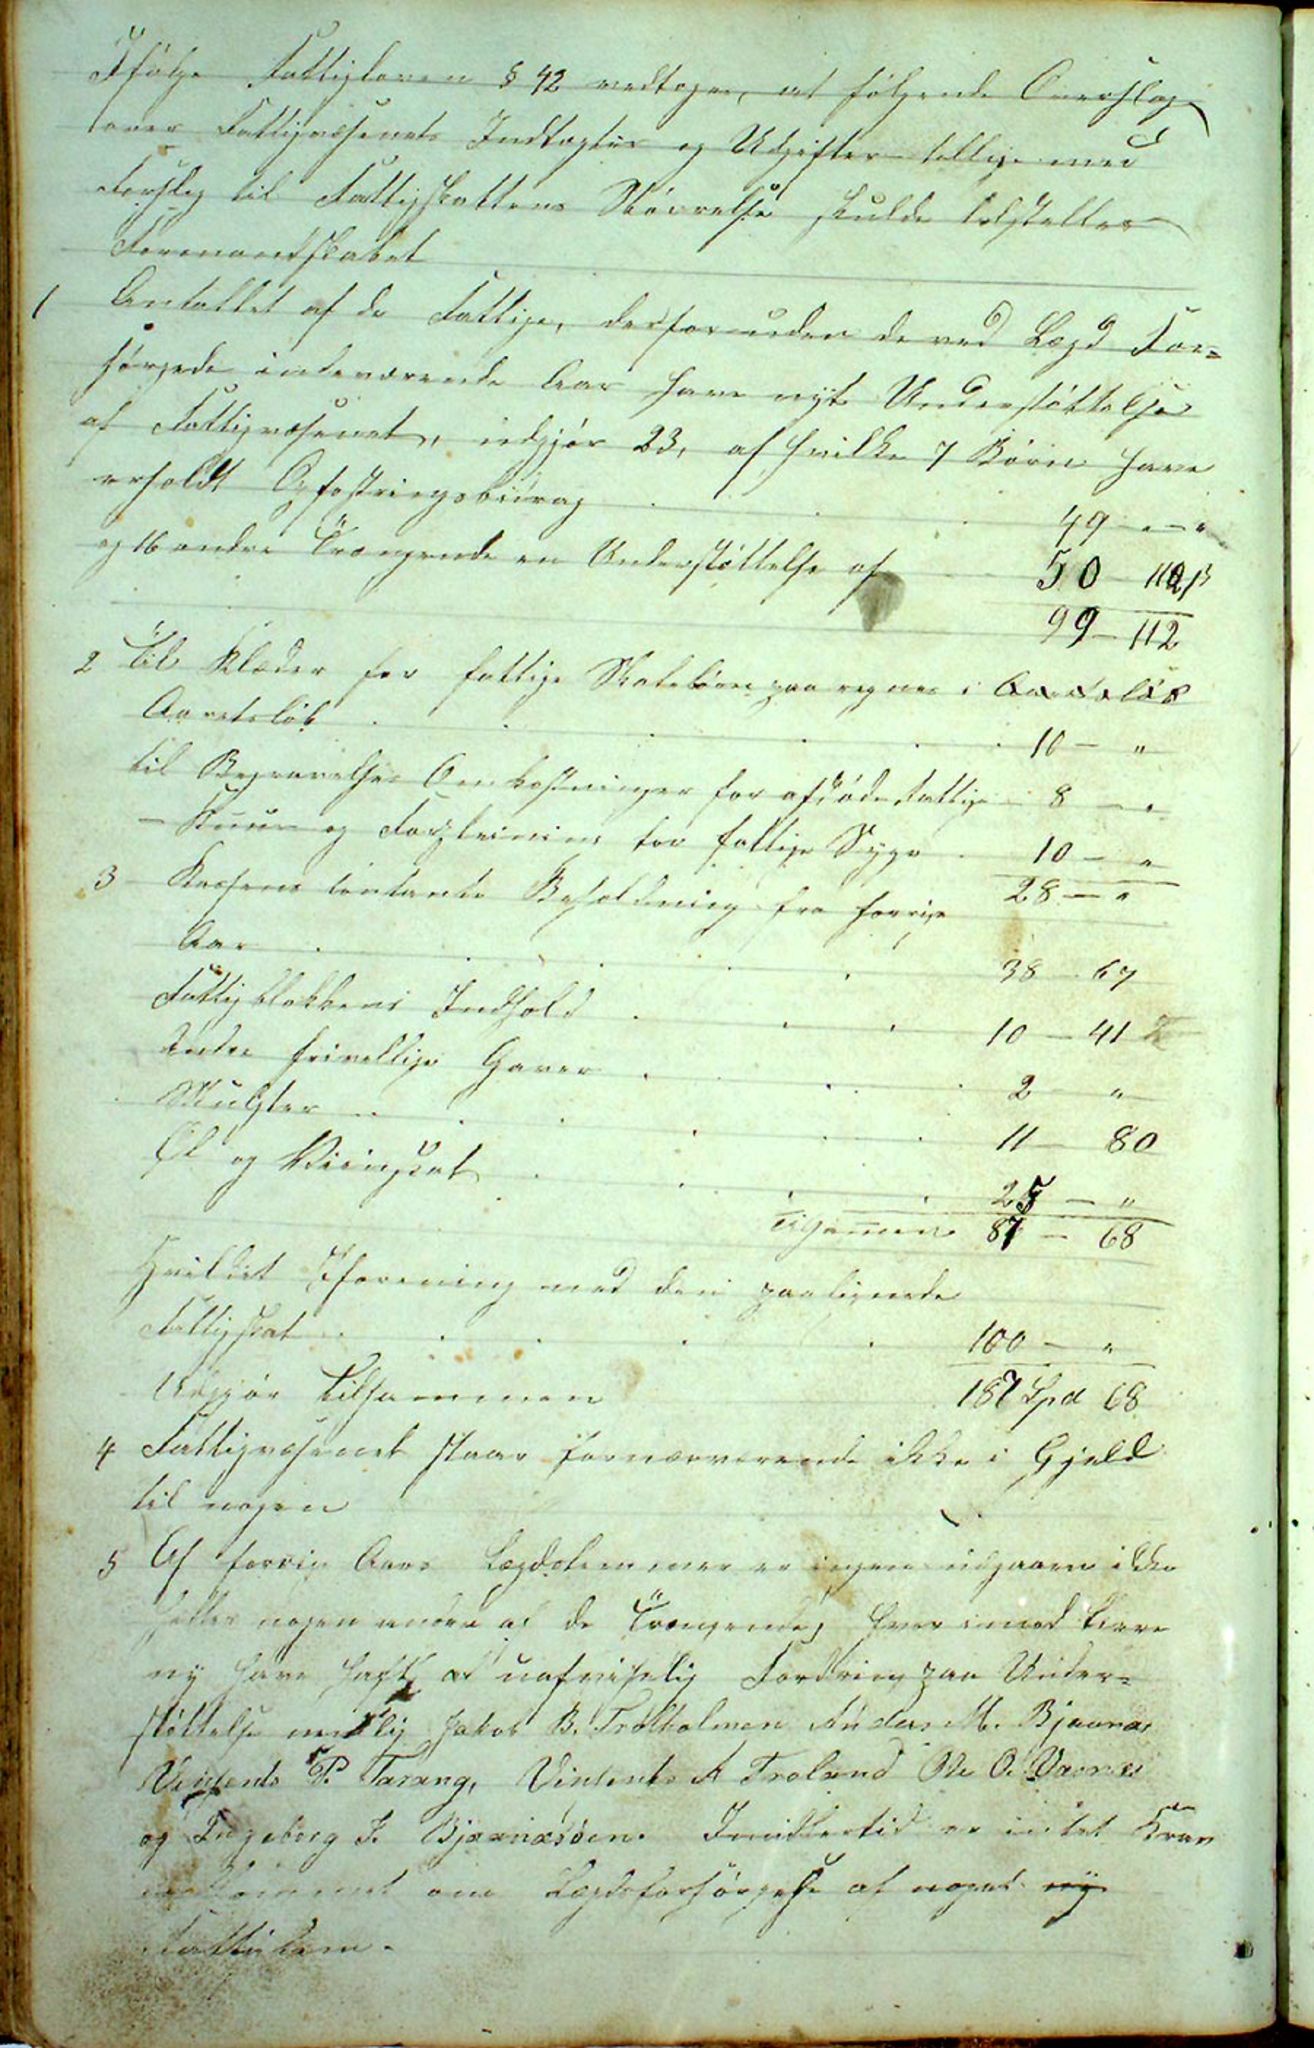 Ifølge Fattigloven § 42 vedtoges, at følgende Overslag
over Fattigvæsenets Indtægter og Udgifter tillige med
Forslag til Fattigskattens Størrelse skulde tilstilles
Formandskabet
1 Antallet af de Fattige, der foruden de ved Lægd For-
sørgede indeværende Aar have nydt Understøttelse
af Fattigvæsenet, udgjør 23, af hvilke 7 Børn have
erholdt Opfostringsbidrag . . . 49 - "
og 16 andre Trængende en Understøttelse af 50 - 112 β
99 - 112
2 Til Klæder for fattige Skolebørn paaregnes i
Aaretsløb . . . . . 10 - "
til Begravelses Omkostninger for afdøde Fattige 8 - "
- Kuur og Forpleining for fattige Syge . 10 - "
28 - "
3 Kassens contante Beholdning fra forrige
Aar . . . . . 38 - 67
Fattigblokkens Indhold . . . 10 - 41
Andre frivillige Gaver . . . 2 - "
Mulkter . . . . . 11 - 80
Øl og Viinskat . . . . 25 - "
87 - 68
Hvilket i Forening med den paalignede
Fattigskat . . . . . 100 - "
Udgjør tilsammen 187 Spd 68
4 Fattigvæsenet staar for nærværende ikke i Gjeld
til nogen
5 Af forrige Aars Lægdslemmer er ingen udgaaen ikke
heller nogen anden af de Trængende, hvorimod
ny have havt uafviselig Fordring paa Under-
støttelse nemlig Jakob B. Trolholmen Anders M. Bjaanæs
Vinsents P. Tarang, Vinsents A Troland Ole O. Vaanæs
og Ingeborg J. Bjaanæsøen. Imidlertid er intet Krav
indkommet om Lægdsforsørgelse af noget ny
Fattiglem.